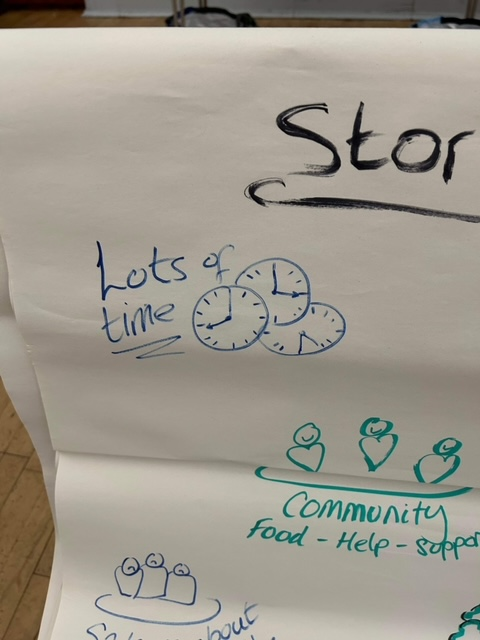 Stor
Lots of
time
Community
Food - Help - Suppor
about